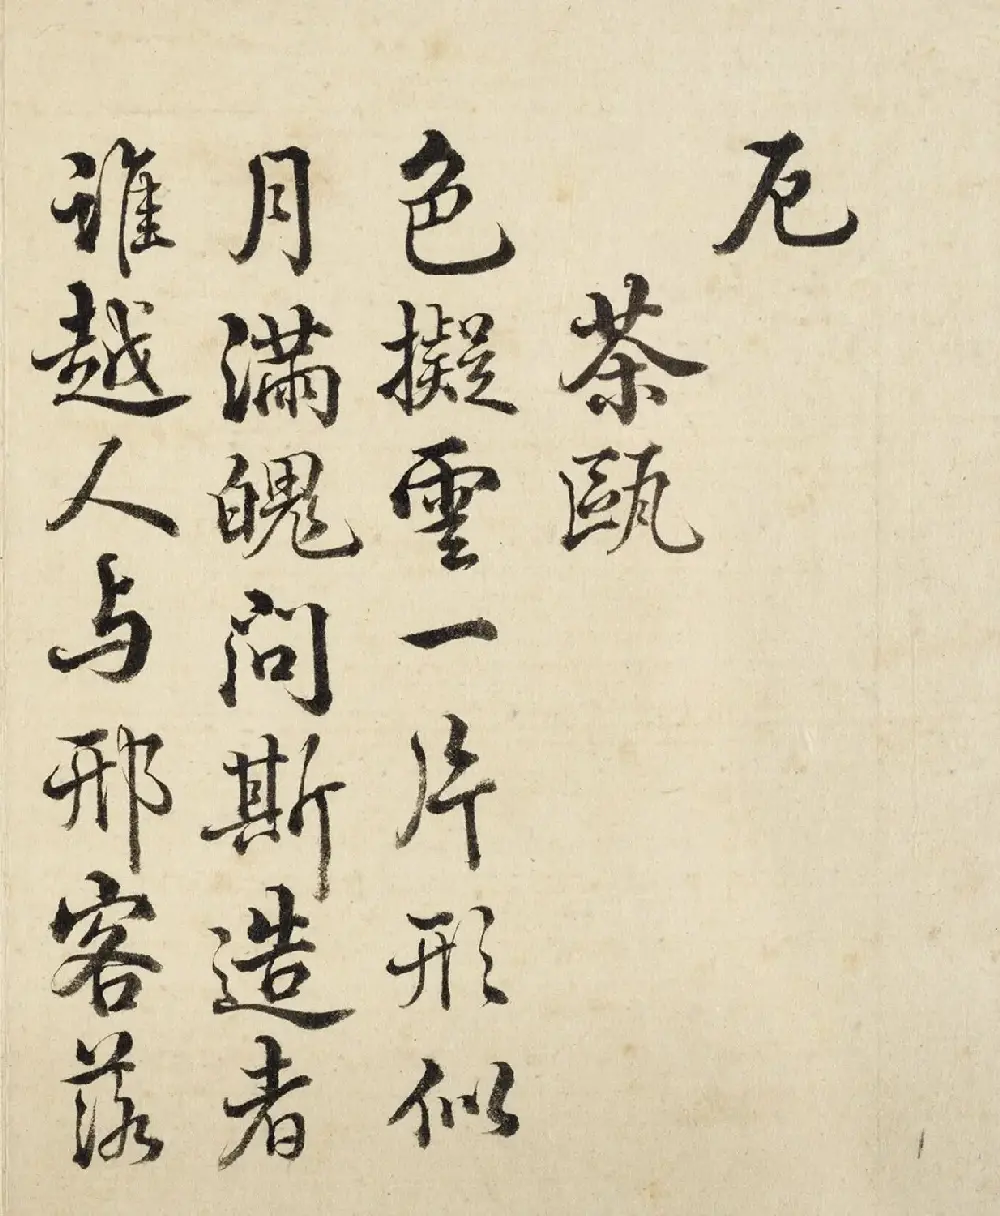 卮
茶甌
色擬雲一片形似
月滿魄問斯造者
誰越人与邢客落